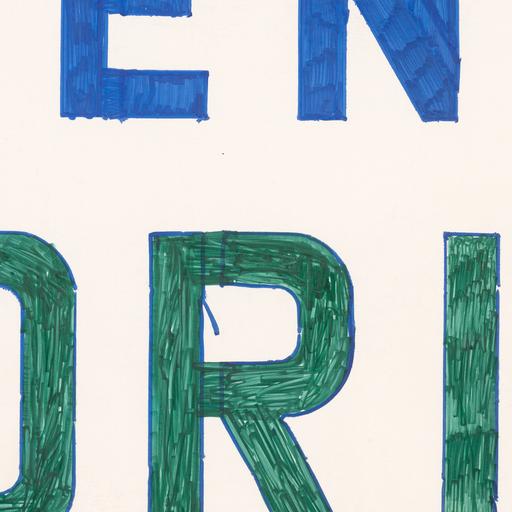 EN
ORI